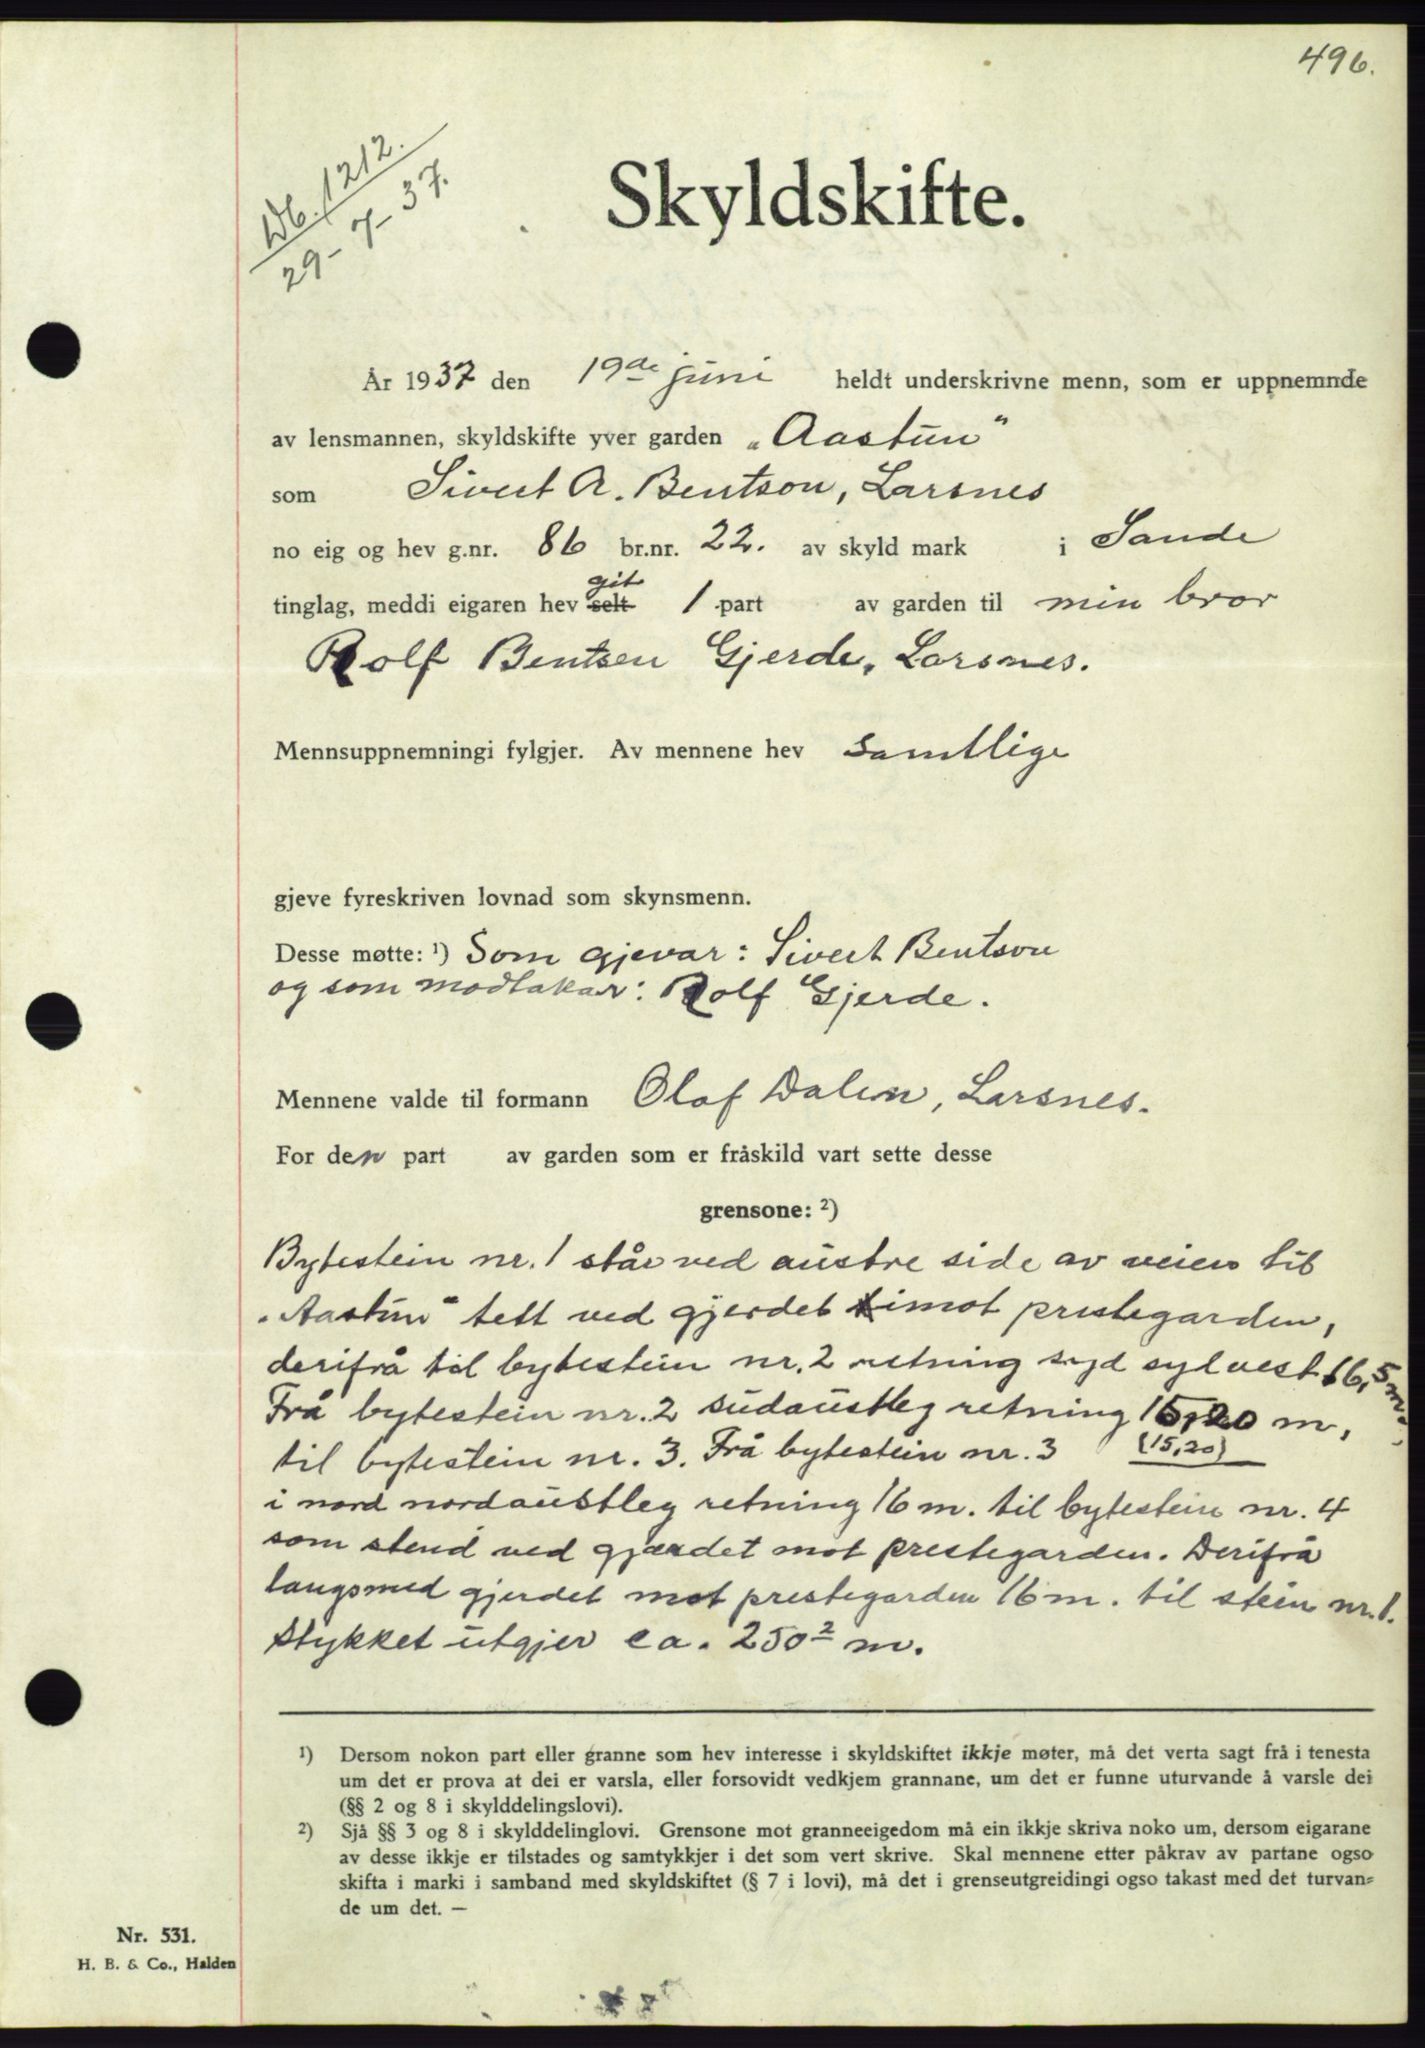 496.
Db. 1212.
29-7-37.
Skyldskifte.
År 1937 den 19de juni heldt underskrivne menn, som er uppnemnde
av lensmannen, skyldskifte yver garden „Aastun"
som Sivert A. Bentson, Larsnes
no eig og hev g.nr. 86 br.nr. 22. av skyld mark i Sande
git
tinglag, meddi eigaren hev selt 1 part av garden til min bror
Rolf Bentsen Gjerde, Larsnes.
Mennsuppnemningi fylgjer. Av mennene hev samtlige
gjeve fyreskriven lovnad som skynsmenn.
Desse møtte: ¹) Som gjevar: Sivert Bentson
og som modtakar: Rolf Gjerde.
Mennene valde til formann Olaf Dalen, Larsnes.
For den part av garden som er fråskild vart sette desse
grensone: ²)
Bytestein nr. 1 står ved austre side av veien til
„Aastun" tett ved gjerdet imot prestegarden,
derifrå til bytestein nr. 2 retning syd sydvest 16,5 m.
Frå bytestein nr. 2 sudaustleg retning 15,20 m,
til bytestein nr. 3. Frå bytestein nr. 3 (15,20)
i nord nordaustleg retning 16 m. til bytestein nr. 4
som stend ved gjærdet mot prestegarden. Derifrå
langsmed gjerdet mot prestegarden 16 m. til stein nr. 1.
Stykket utgjer ca. 250² m.
¹) Dersom nokon part eller granne som hev interesse i skyldskiftet ikkje møter, må det verta sagt frå i tenesta
um det er prova at dei er varsla, eller forsovidt vedkjem grannane, um det er funne uturvande å varsle dei
(§§ 2 og 8 i skylddelingslovi).
²) Sjå §§ 3 og 8 i skylddelinglovi. Grensone mot granneeigedom må ein ikkje skriva noko um, dersom eigarane
av desse ikkje er tilstades og samtykkjer i det som vert skrive. Skal mennene etter påkrav av partane ogso
skifta i marki i samband med skyldskiftet (§ 7 i lovi), må det i grenseutgreidingi ogso takast med det turvan=
de um det. —
Nr. 531.
H. B. & Co., Halden